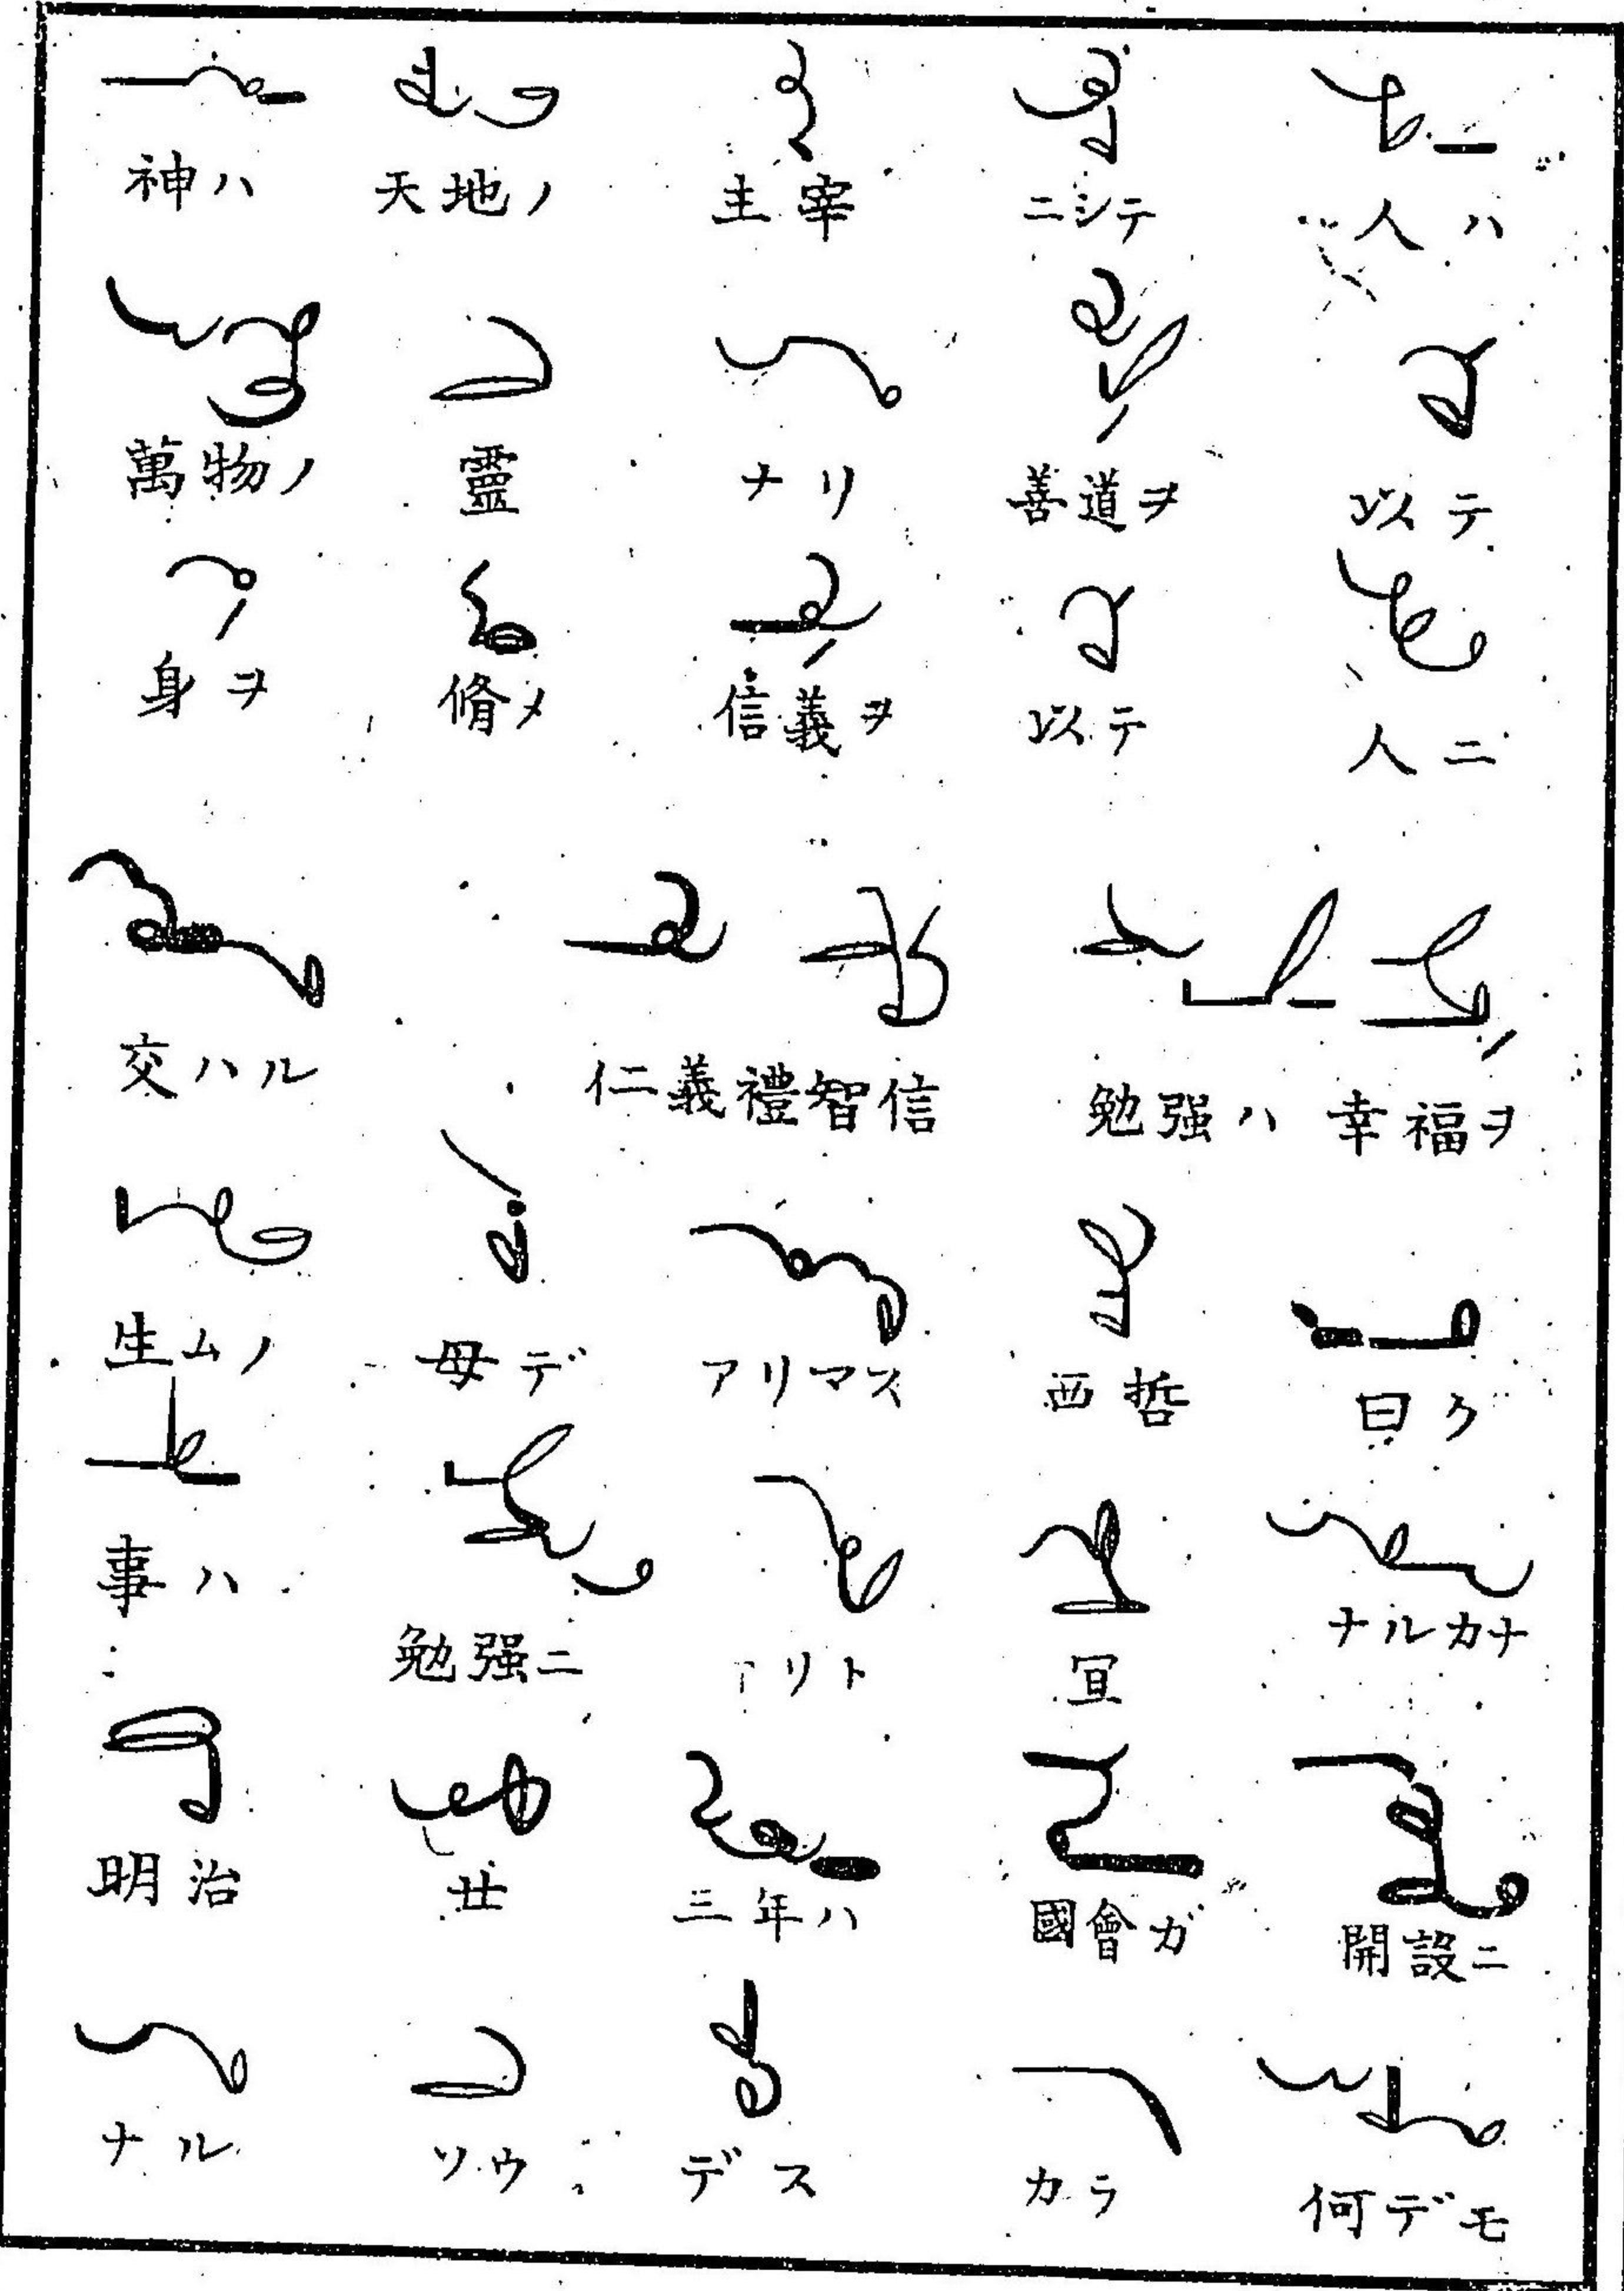 神ハ 天地ノ 主宰 ニシテ 人ハ
萬物ノ 靈 ナリ 善道ヲ 以テ
身ヲ 脩メ 信義ヲ 以テ 人ニ
交ハル 仁義禮智信 勉强ハ 幸福ヲ
生ムノ 母デ アリマス 西哲 曰ク
事ハ 勉强ニ リト 冝 ナルカナ
明治 廿 三年ハ 國會ガ 開設ニ
ナル ソウ デス カラ 何デモ